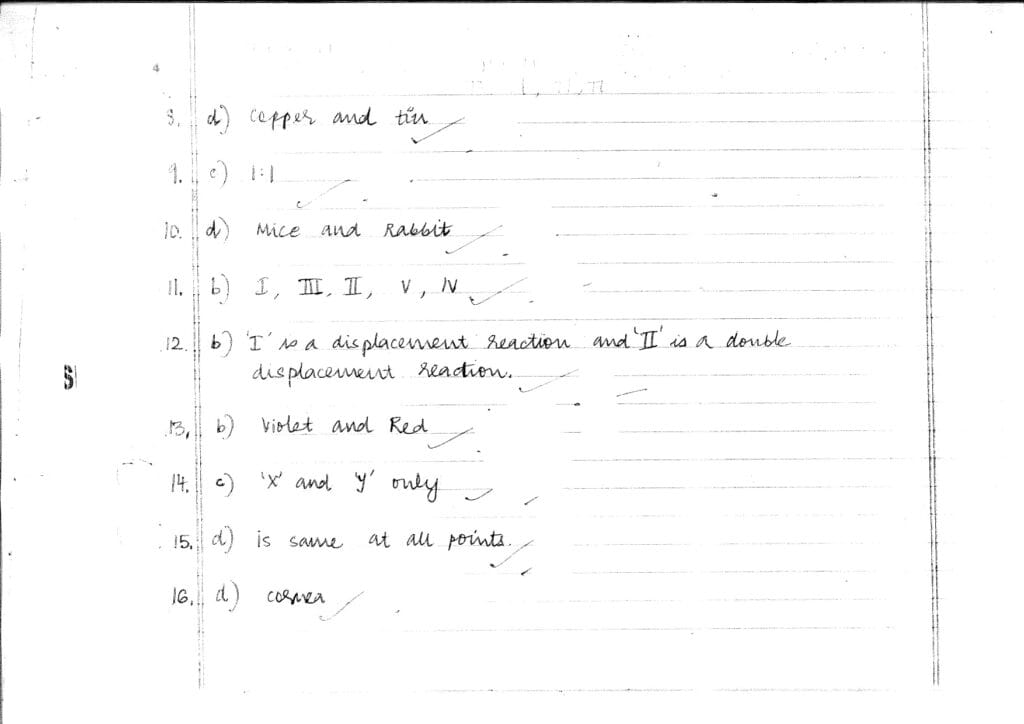 4
8. d) Copper and tin
9. c) 1:1
10. d) Mice and Rabbit
11. b) I, III, II, V, IV
12. b) 'I' is a displacement reaction and 'II' is a double
displacement reaction.
13, b) Violet and Red
14. c) 'X' and 'Y' only
15. d) is same at all points.
16. d) cornea
5